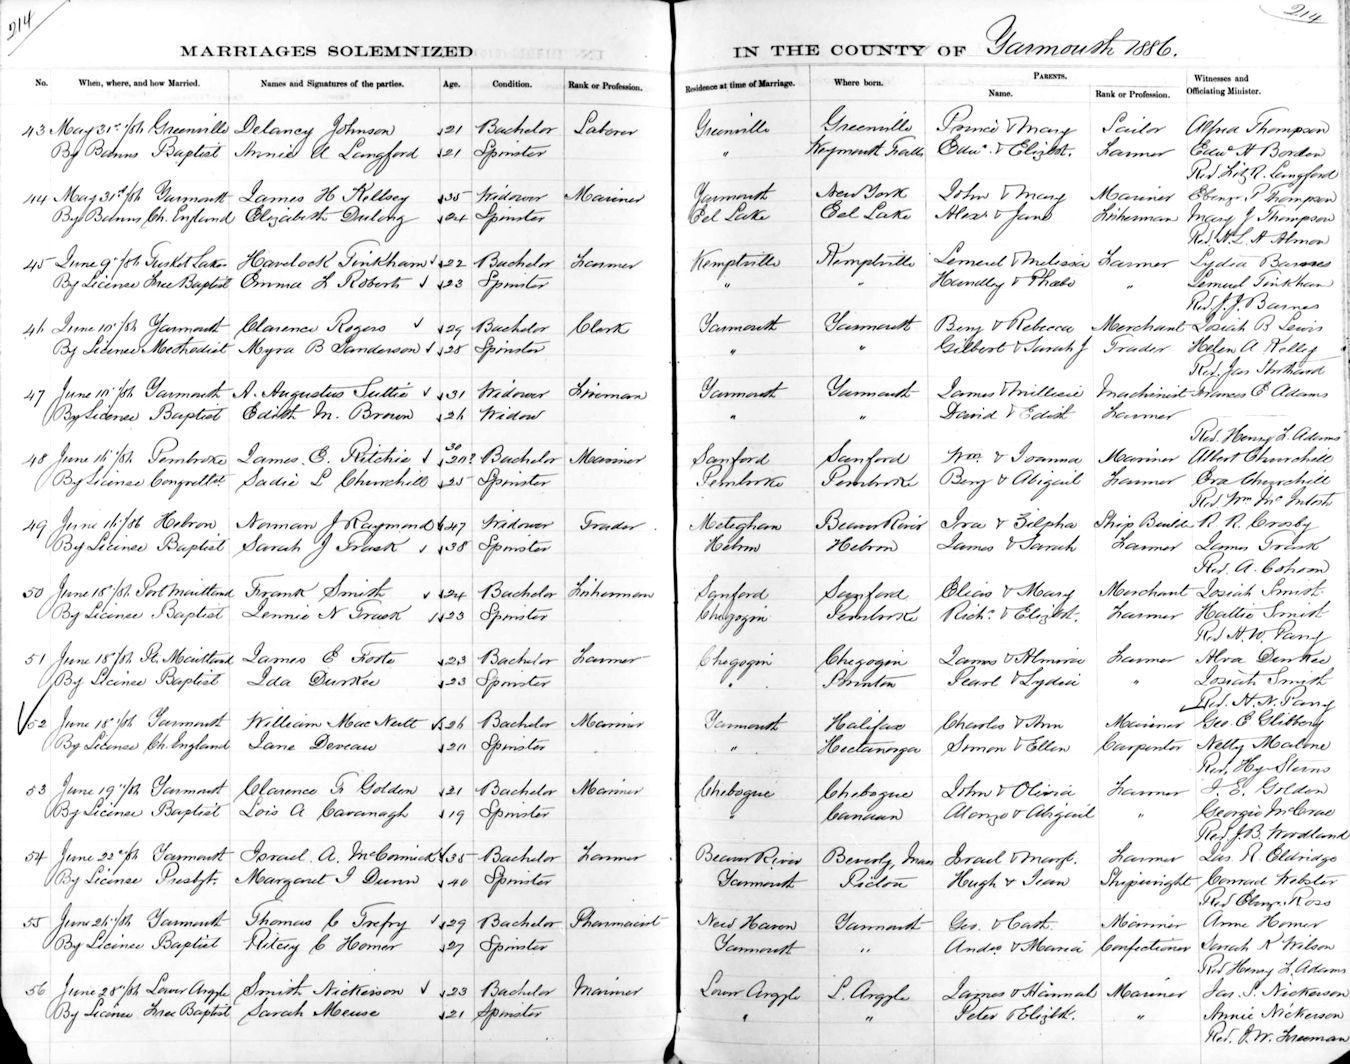 214
214
MARRIAGES SOLEMNIZED IN THE COUNTY OF Yarmouth 1886.
No. When, where, and how Married. Names and Signatures of the parties. Age. Condition. Rank or Profession. Residence at time of Marriage. Where born. PARENTS. Witnesses and Officiating Minister.
Name. Rank or Profession.
43 May 31st /86 Greenville Delancy Johnson 21 Bachelor Laborer Greenville Greenville Prince & Mary Sailor Alfred Thompson
By Banns Baptist Annie A Langford 21 Spinster " Weymouth Falls Edwd. & Elizbt. Farmer Edwd H Borden
Rev. Fitz R. Langford
44 May 31st /86 Yarmouth James H Kellsey 35 Widower Mariner Yarmouth New York John & Mary Mariner Ebenzr P Thompson
By Banns Ch. England Elizabeth Dulong 24 Spinster Eel Lake Eel Lake Alexr & Jane Fisherman Mary J Thompson
Rev. N. L. A Almon
45 June 9" /86 Tusket Lakes Havelock Tinkham 22 Bachelor Farmer Kemptville Kemptville Lemuel & Melissa Farmer Lydia Barnes
By License Free Baptist Emma F Roberts 23 Spinster " " Handley & Phoebe " Lemuel Tinkham
Rev. J. J. Barnes
46 June 10" /86 Yarmouth Clarence Rogers 29 Bachelor Clerk Yarmouth Yarmouth Benj & Rebecca Merchant Josiah B Lewis
By License Methodist Myra B Sanderson 28 Spinster " " Gilbert & Sarah J Trader Helen A Kelley
Rev. Jas Strothard
47 June 10" /86 Yarmouth A. Augustus Suttie 31 Widower Fireman Yarmouth Yarmouth James & Millisie Machinist Frances E Adams
By License Baptist Edith M. Brown 26 Widow " " David & Edith Farmer
Rev. Henry F. Adams
48 June 16" /86 Pembroke James E. Ritchie 30 20? Bachelor Mariner Sanford Sanford Wm. & Joanna Mariner Albert Churchill
By License Congrettl. Sadie L Churchill 25 Spinster Pembroke Pembroke Benj & Abigail Farmer Eva Churchill
Rev Wm Mc Intosh
49 June 16" /86 Hebron Norman J Raymond 47 Widower Trader Meteghan Beaver River Ira & Zilpha Ship Build. R. R. Crosby
By License Baptist Sarah J Trask 38 Spinster Hebron Hebron James & Sarah Farmer James Trask
Rev. A. Cohoon
50 June 18" /86 Port Maitland Frank Smith 24 Bachelor Fisherman Sanford Sanford Elias & Mary Merchant Josiah Smith
By License Baptist Jennie N Trask 23 Spinster Chegogin Pembroke Richd. & Elizbt. Farmer Hattie Smith
Rev H. N. Parry
51 June 18" /86 Pt. Maitland James E Foote 23 Bachelor Farmer Chegogin Chegogin James & Almira Farmer Alva Durkee
By License Baptist Ida Durkee 23 Spinster " Brinton Pearl & Lydia " Josiah Smith
Rev. H. N. Parry
52 June 18" /86 Yarmouth William MacNeill 26 Bachelor Mariner Yarmouth Halifax Charles & Ann Mariner Geo E Glibbery
By License Ch. England Jane Deveau 20 Spinster " Hectanooga Simon & Ellen Carpenter Netty Malone
Rev. Hy Sterns
53 June 19" /86 Yarmouth Clarence F. Golden 21 Bachelor Mariner Chebogue Chebogue John & Olivia Farmer J. E. Golden
By License Baptist Lois A Cavanagh 19 Spinster " Canaan Alonzo & Abigail " Georgie McCrae
Rev. J. B. Woodland
54 June 22nd /86 Yarmouth Israel A. McCormick 35 Bachelor Farmer Beaver River Beverly, Mass Israel & Margt. Farmer Jas. R. Eldridge
By License Presbyt. Margaret J Dunn 40 Spinster Yarmouth Pictou Hugh & Jean Shipwright Conrad Webster
Rev Ebenzr Ross
55 June 26" /86 Yarmouth Thomas C Trefry 29 Bachelor Pharmacist New Haven Yarmouth Geo. & Cath. Mariner Anne Homer
By License Baptist Ritcey C Homer 27 Spinster Yarmouth " Andw & Maria Confectioner Sarah K Wilson
Rev Henry F. Adams
56 June 28" /86 Lower Argyle Smith Nickerson 23 Bachelor Mariner Lower Argyle L. Argyle James & Hannah Mariner Jas. S. Nickerson
By License Free Baptist Sarah Meuse 21 Spinster " " Peter & Elizbt. " Annie Nickerson
Rev. J. W. Freeman